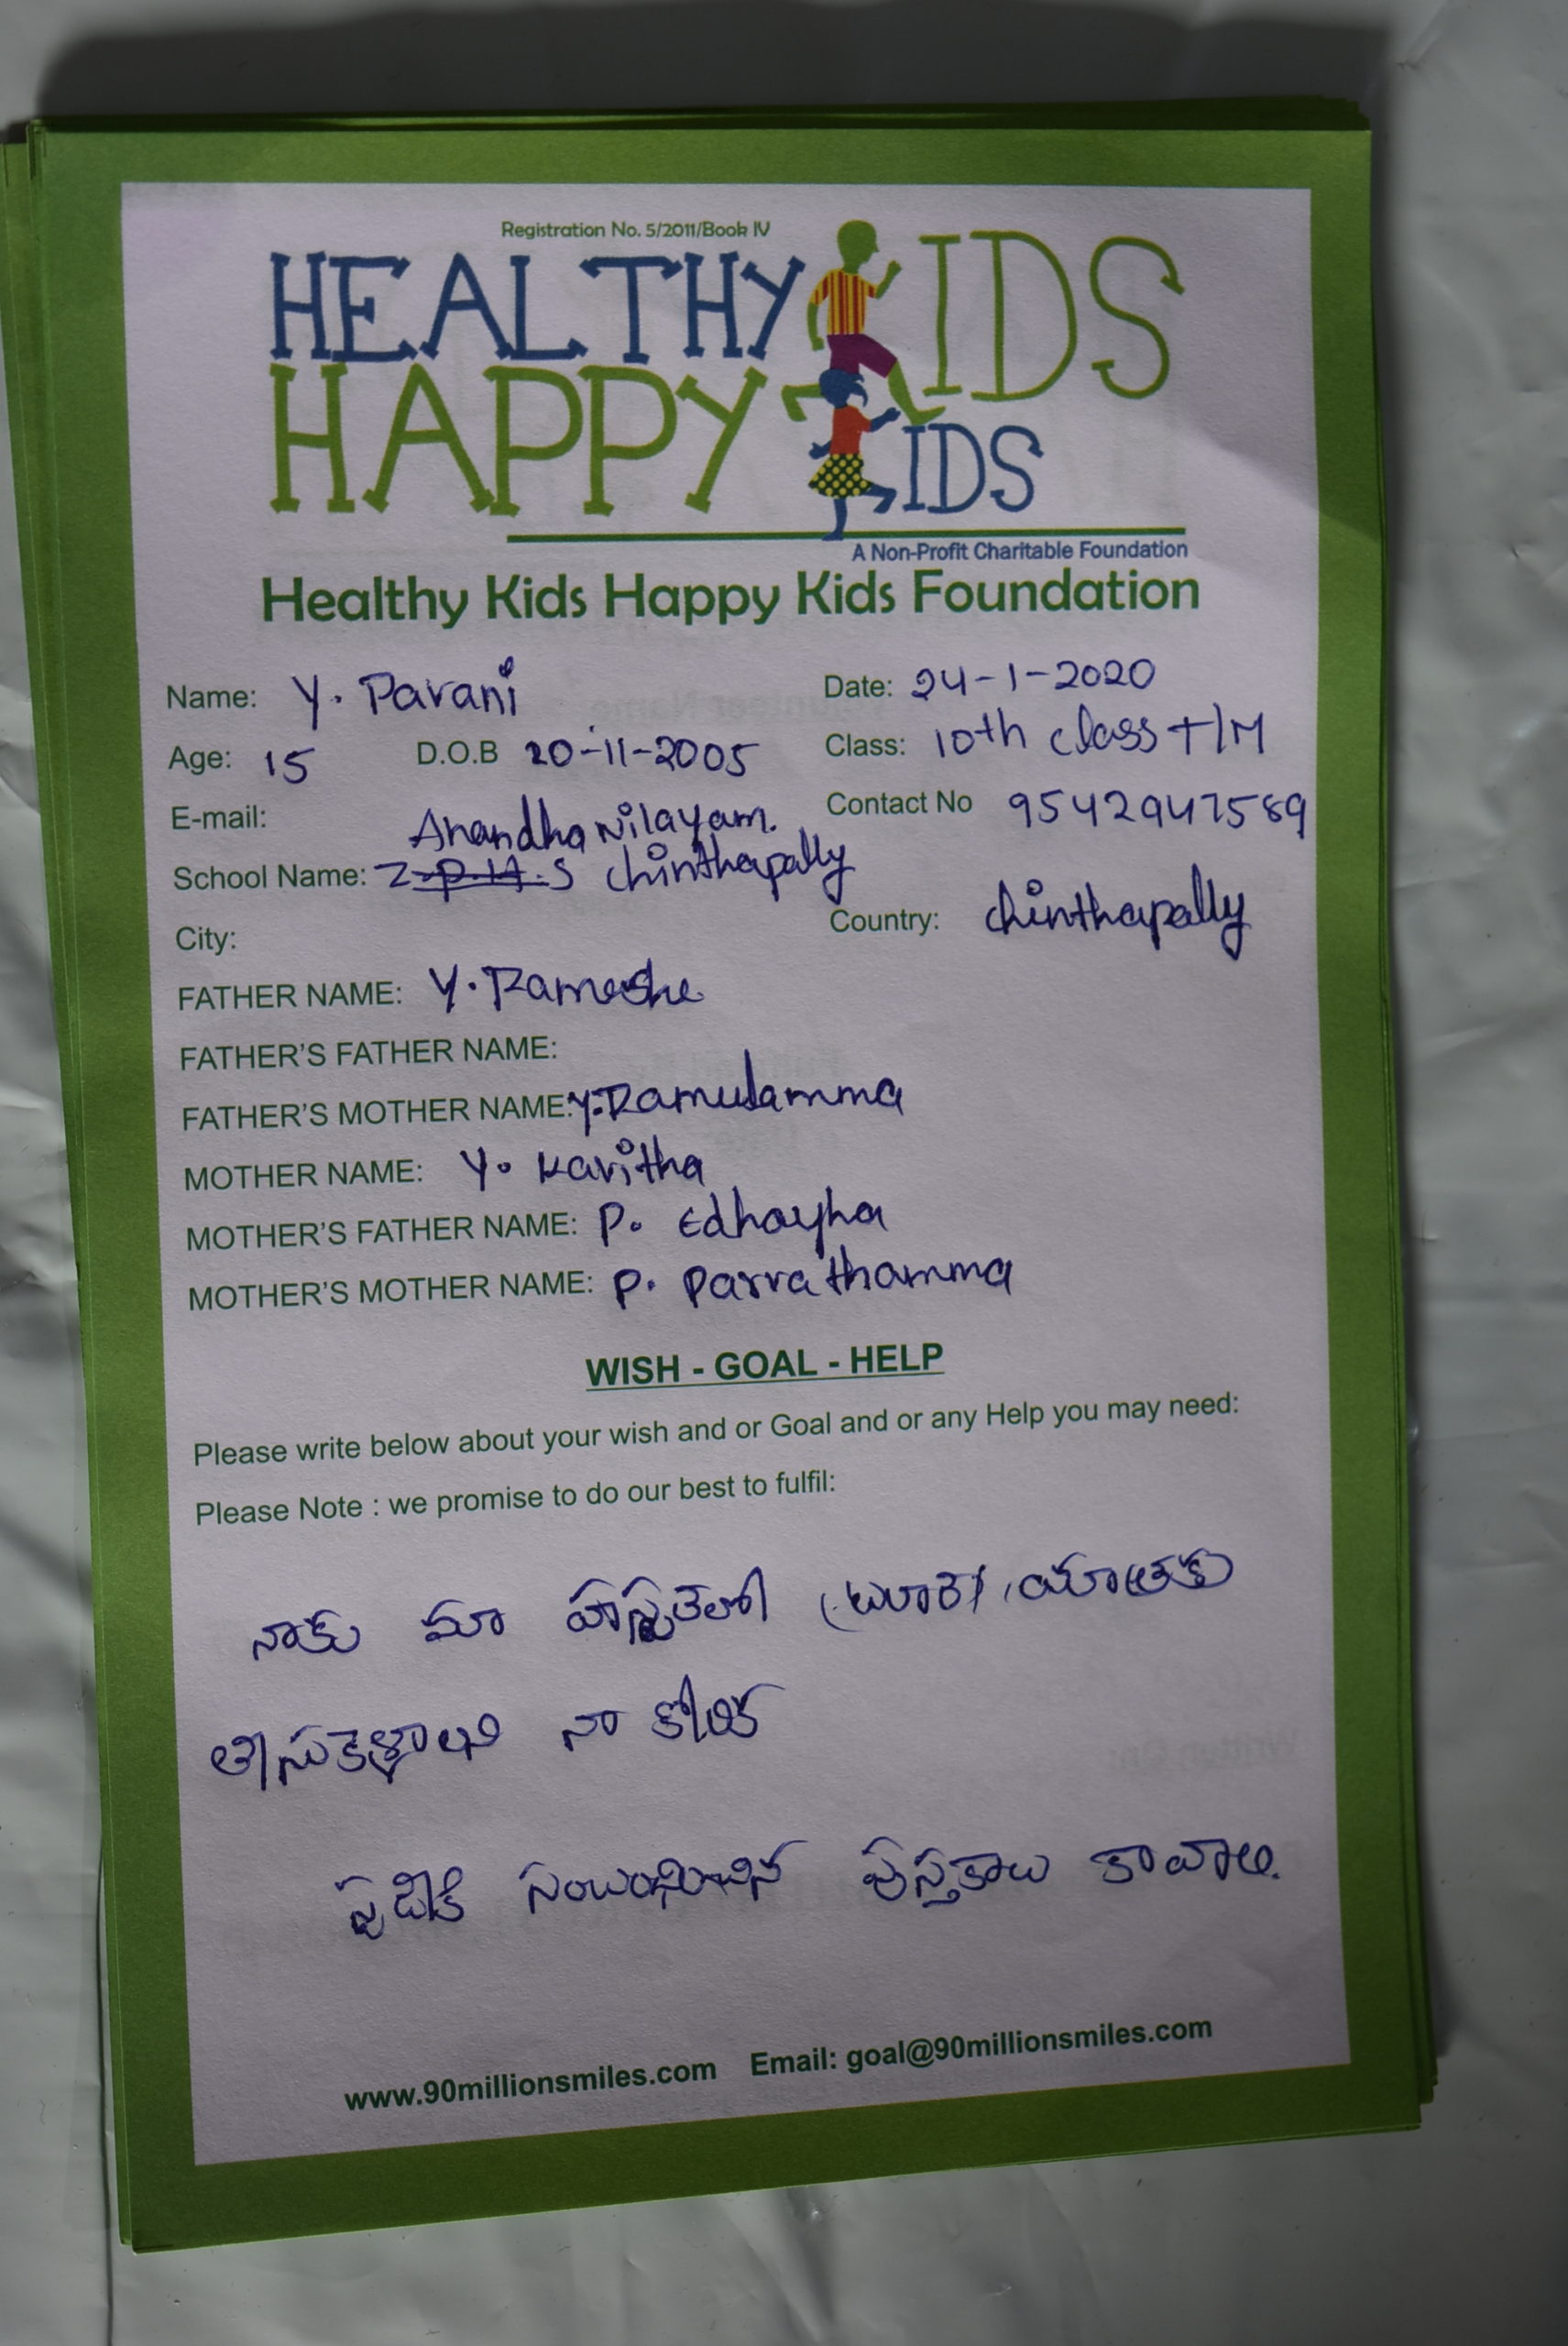 Registration No. 5/2011/Book IV
HEALTHY KIDS
HAPPY KIDS
A Non-Profit Charitable Foundation
Healthy Kids Happy Kids Foundation
Name: Y. Pavani Date: 24-1-2020
Age: 15 D.O.B 20-11-2005 Class: 10th class T/M
E-mail: Contact No 9542947589
Anandha Nilayam.
School Name: Z.P.H.S chinthapally
City: Country: chinthapally
FATHER NAME: Y. Rameshe
FATHER'S FATHER NAME:
FATHER'S MOTHER NAME: Y. Ramulamma
MOTHER NAME: Y. Kavitha
MOTHER'S FATHER NAME: P. Edhayha
MOTHER'S MOTHER NAME: P. Parvathamma
WISH - GOAL - HELP
Please write below about your wish and or Goal and or any Help you may need:
Please Note : we promise to do our best to fulfil:
నాకు మా యాత్రకు
తీసుకెళ్లాలని నా కోరిక
సంబంధించిన పుస్తకాలు కావాలి.
www.90millionsmiles.com Email: goal@90millionsmiles.com